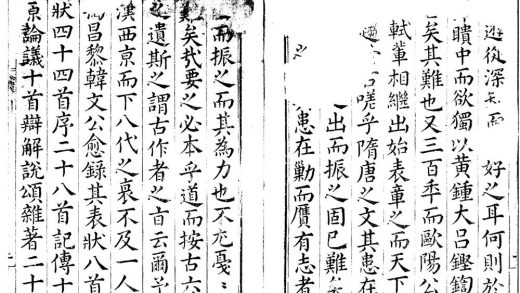 深 而 好之耳何則於
中而欲獨以黃鍾大呂鏗鍧
矣其難也又三百年而歐陽公
軾輩相繼出始表章之而天下
嗟乎隋唐之文其患在
出而振之固已難矣
之 患在勦而贋有志者
而振之而其為力也不尤戞〻
矣哉要之必本乎道而按古六
之遺斯之謂古作者之言云爾
漢西京而下八代之衰不及一人
昌黎韓文公愈錄其表狀八首
狀四十四首序二十八首記傳十
原論議十首辯解說頌雜著二十